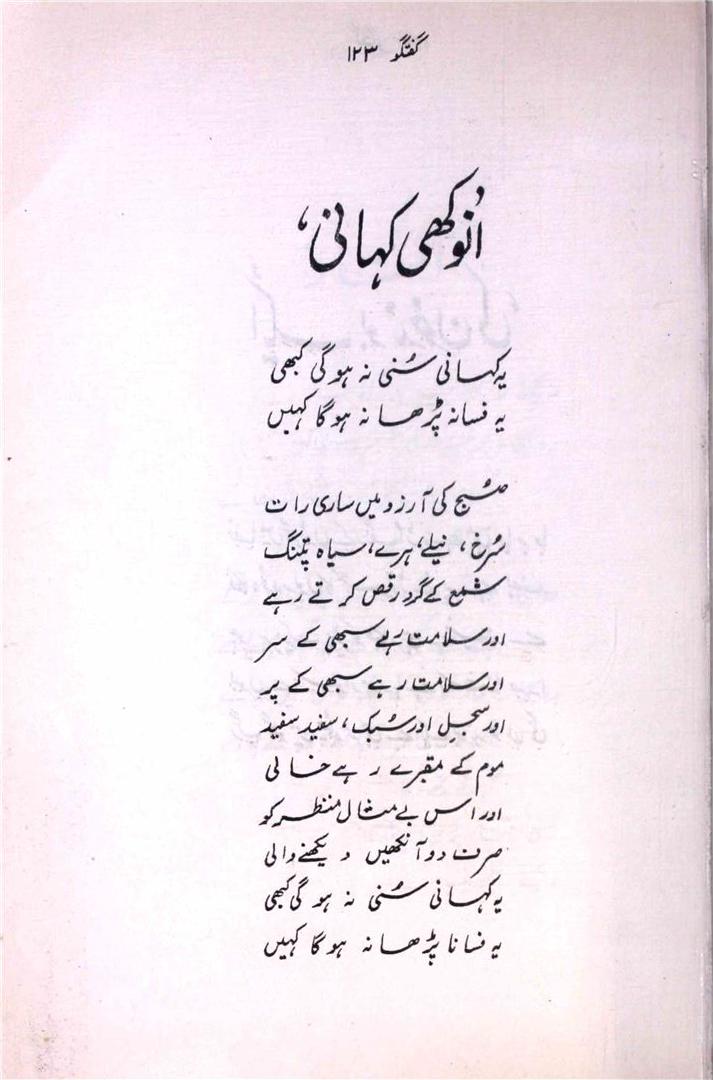 گفتگو ۱۲۳
انوکھی کہانی،
یہ کہانی سُنی نہ ہوگی کبھی
یہ فسانہ پڑھا نہ ہوگا کہیں
صُبح کی آرزو میں ساری رات
سُرخ، نیلے، ہرے، سیاہ پتنگ
شمع کے گرد رقص کرتے رہے
اور سلامت رہے سبھی کے سر
اور سلامت رہے سبھی کے پر
اور سجل اور سُبک، سفید سفید
موم کے مقبرے رہے خالی
اور اس بے مثال منظر کو
صرف دو آنکھیں دیکھنے والی
یہ کہانی سُنی نہ ہوگی کبھی
یہ فسانا پڑھا نہ ہوگا کہیں